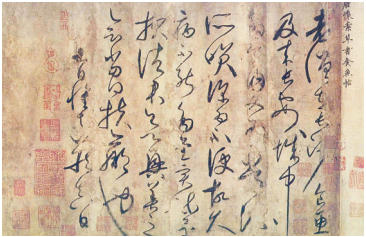 懷素草書食魚帖
老僧在長沙食魚
及來長安城中
多食肉又為常流
所笑深為不便故久
病不能多書實疎還
報諸君欲興善之
會當得扶羸也
日懷素藏真白